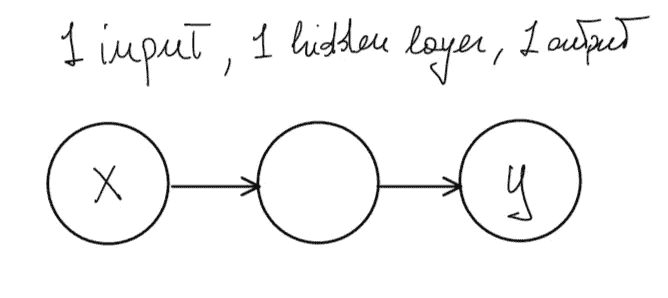 1 input, 1 hidden layer, 1 output
x y